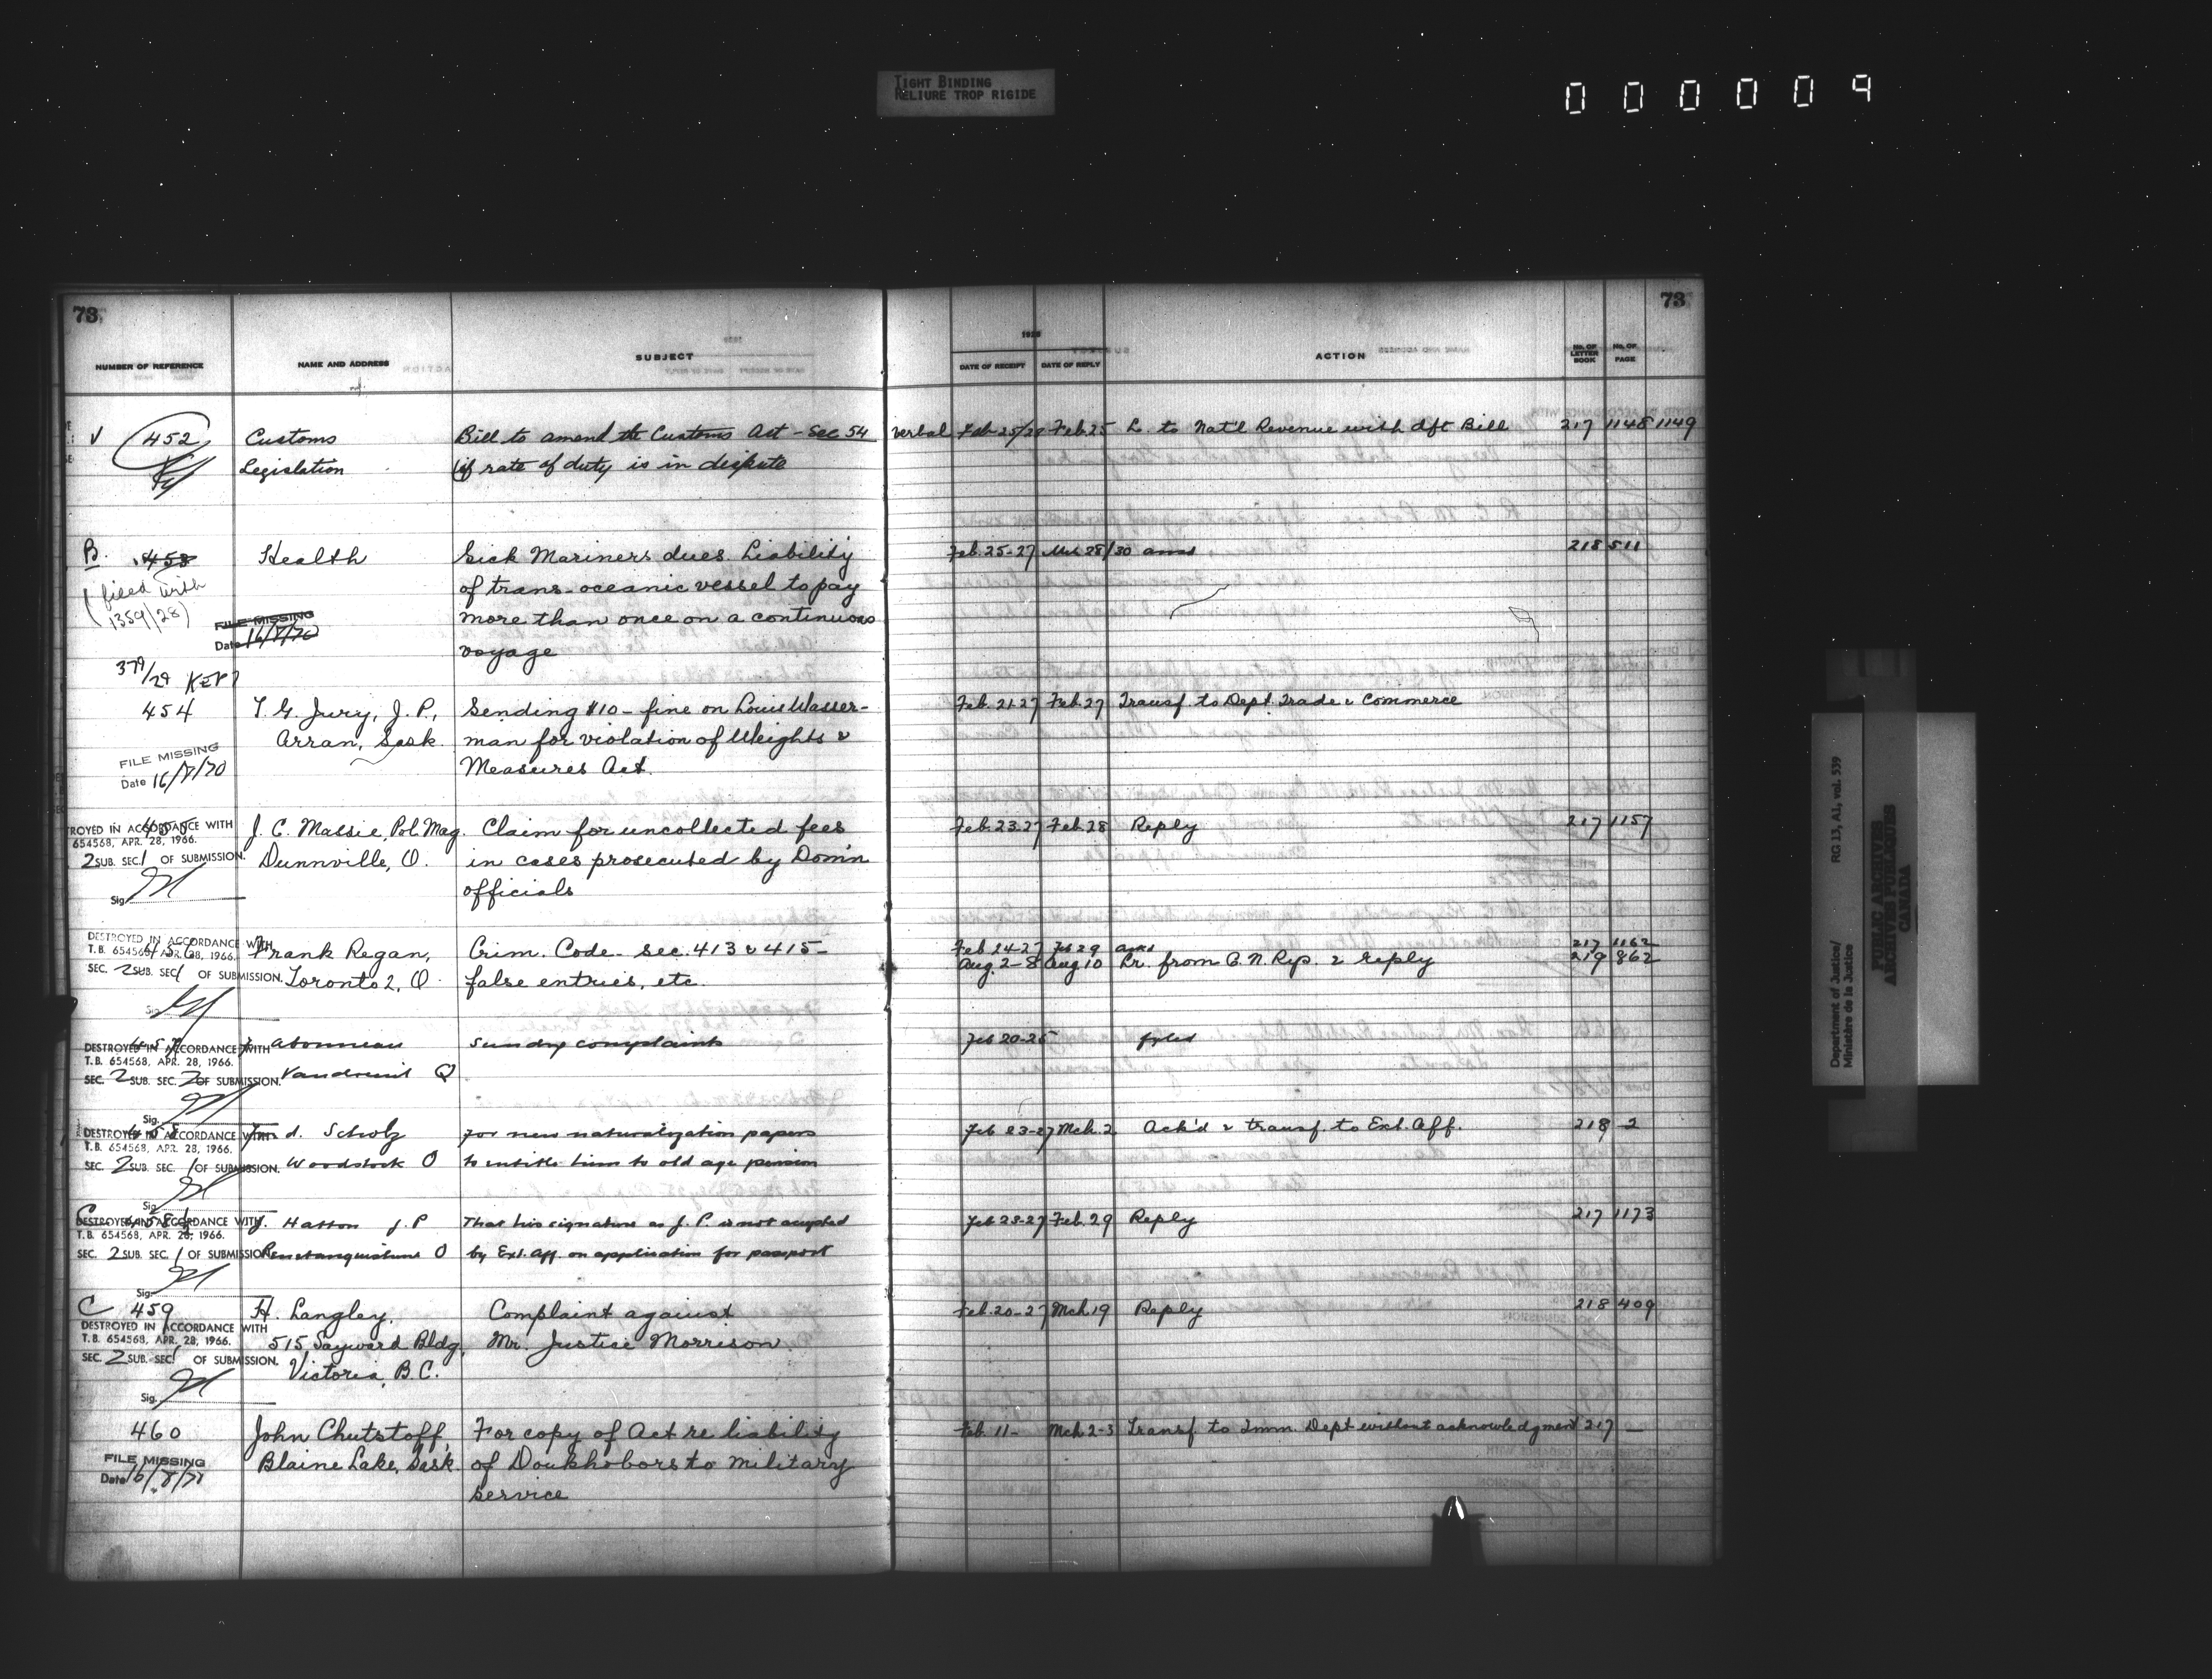 TIGHT BINDING
RELIURE TROP RIGIDE
000009
73
73
NUMBER OF REFERENCE NAME AND ADDRESS SUBJECT
1928
DATE OF RECEIPT DATE OF REPLY ACTION No. OF LETTER BOOK No. OF PAGE
√ 452 Customs Bill to amend the Customs Act - Sec 54 verbal Feb 25/28 Feb. 25 L. to Nat'l Revenue with dft Bill 217 1148 1149
Legislation (if rate of duty is in dispute
B. 453 Health Sick Mariners dues. Liability Feb. 25-27 Mch 28/30 ansd 218 511
(filed with of trans-oceanic vessel to pay
1359/28) more than once on a continuous
FILE MISSING
Date 16/8/70
voyage
379/29 KEPT
454 T. G. Jury, J. P., Sending $10 - fine on Louis Wasser- Feb. 21-27 Feb. 27 Transf. to Dept. Trade & Commerce
Arran, Sask. man for violation of Weights &
FILE MISSING
Date 16/8/70
Measures Act.
455 J. C. Massie, Pol. Mag. Claim for uncollected fees Feb. 23-27 Feb. 28 Reply 217 1157
TROYED IN ACCORDANCE WITH
654568, APR. 28, 1966.
2 SUB. SEC. 1 OF SUBMISSION.
Dunnville, O. in cases prosecuted by Dom'n
officials
Sig.
DESTROYED IN ACCORDANCE WITH
T.B. 654568, APR. 28, 1966.
SEC. 2 SUB. SEC. 1 OF SUBMISSION.
456 Frank Regan, Crim. Code - sec. 413 & 415 - Feb 24-27 Feb 29 ansd 217 1162
Aug. 2-8 Aug 10 Lr. from C. N. Rys. & reply 219 862
Toronto 2, O. false entries, etc.
Sig.
457 Sundry complaints Feb 20-25 filed
DESTROYED IN ACCORDANCE WITH
T.B. 654568, APR. 28, 1966.
SEC. 2 SUB. SEC. 2 OF SUBMISSION.
Vaudreuil Q
Sig.
458 Scholz For new naturalization papers Feb 23-27 Mch. 2 Ack'd & transf. to Ext. Aff. 218 2
DESTROYED IN ACCORDANCE WITH
T.B. 654568, APR. 28, 1966.
SEC. 2 SUB. SEC. 1 OF SUBMISSION.
Woodstock O to entitle him to old age pension
Sig.
C 458½ J. Hatton J. P That his signature as J. P. is not accepted Feb 23-27 Feb. 29 Reply 217 1173
DESTROYED IN ACCORDANCE WITH
T.B. 654568, APR. 28, 1966.
SEC. 2 SUB. SEC. 1 OF SUBMISSION
Penetanguishene O by Ext. Aff. on application for passport
Sig.
C 459 H. Langley, Complaint against Feb. 20-27 Mch. 19 Reply 218 409
DESTROYED IN ACCORDANCE WITH
T.B. 654568, APR. 28, 1966.
SEC. 2 SUB. SEC. 1 OF SUBMISSION.
515 Sayward Bldg, Mr. Justice Morrison.
Victoria, B.C.
Sig.
460 John Chutstoff, For copy of Act re liability Feb. 11- Mch 2-3 Transf. to Imm. Dept without acknowledgment 217 —
FILE MISSING
Date 16/8/71
Blaine Lake, Sask. of Doukhobors to military
service
Department of Justice/ RG 13, A1, vol. 539
Ministère de la Justice
PUBLIC ARCHIVES
ARCHIVES PUBLIQUES
CANADA